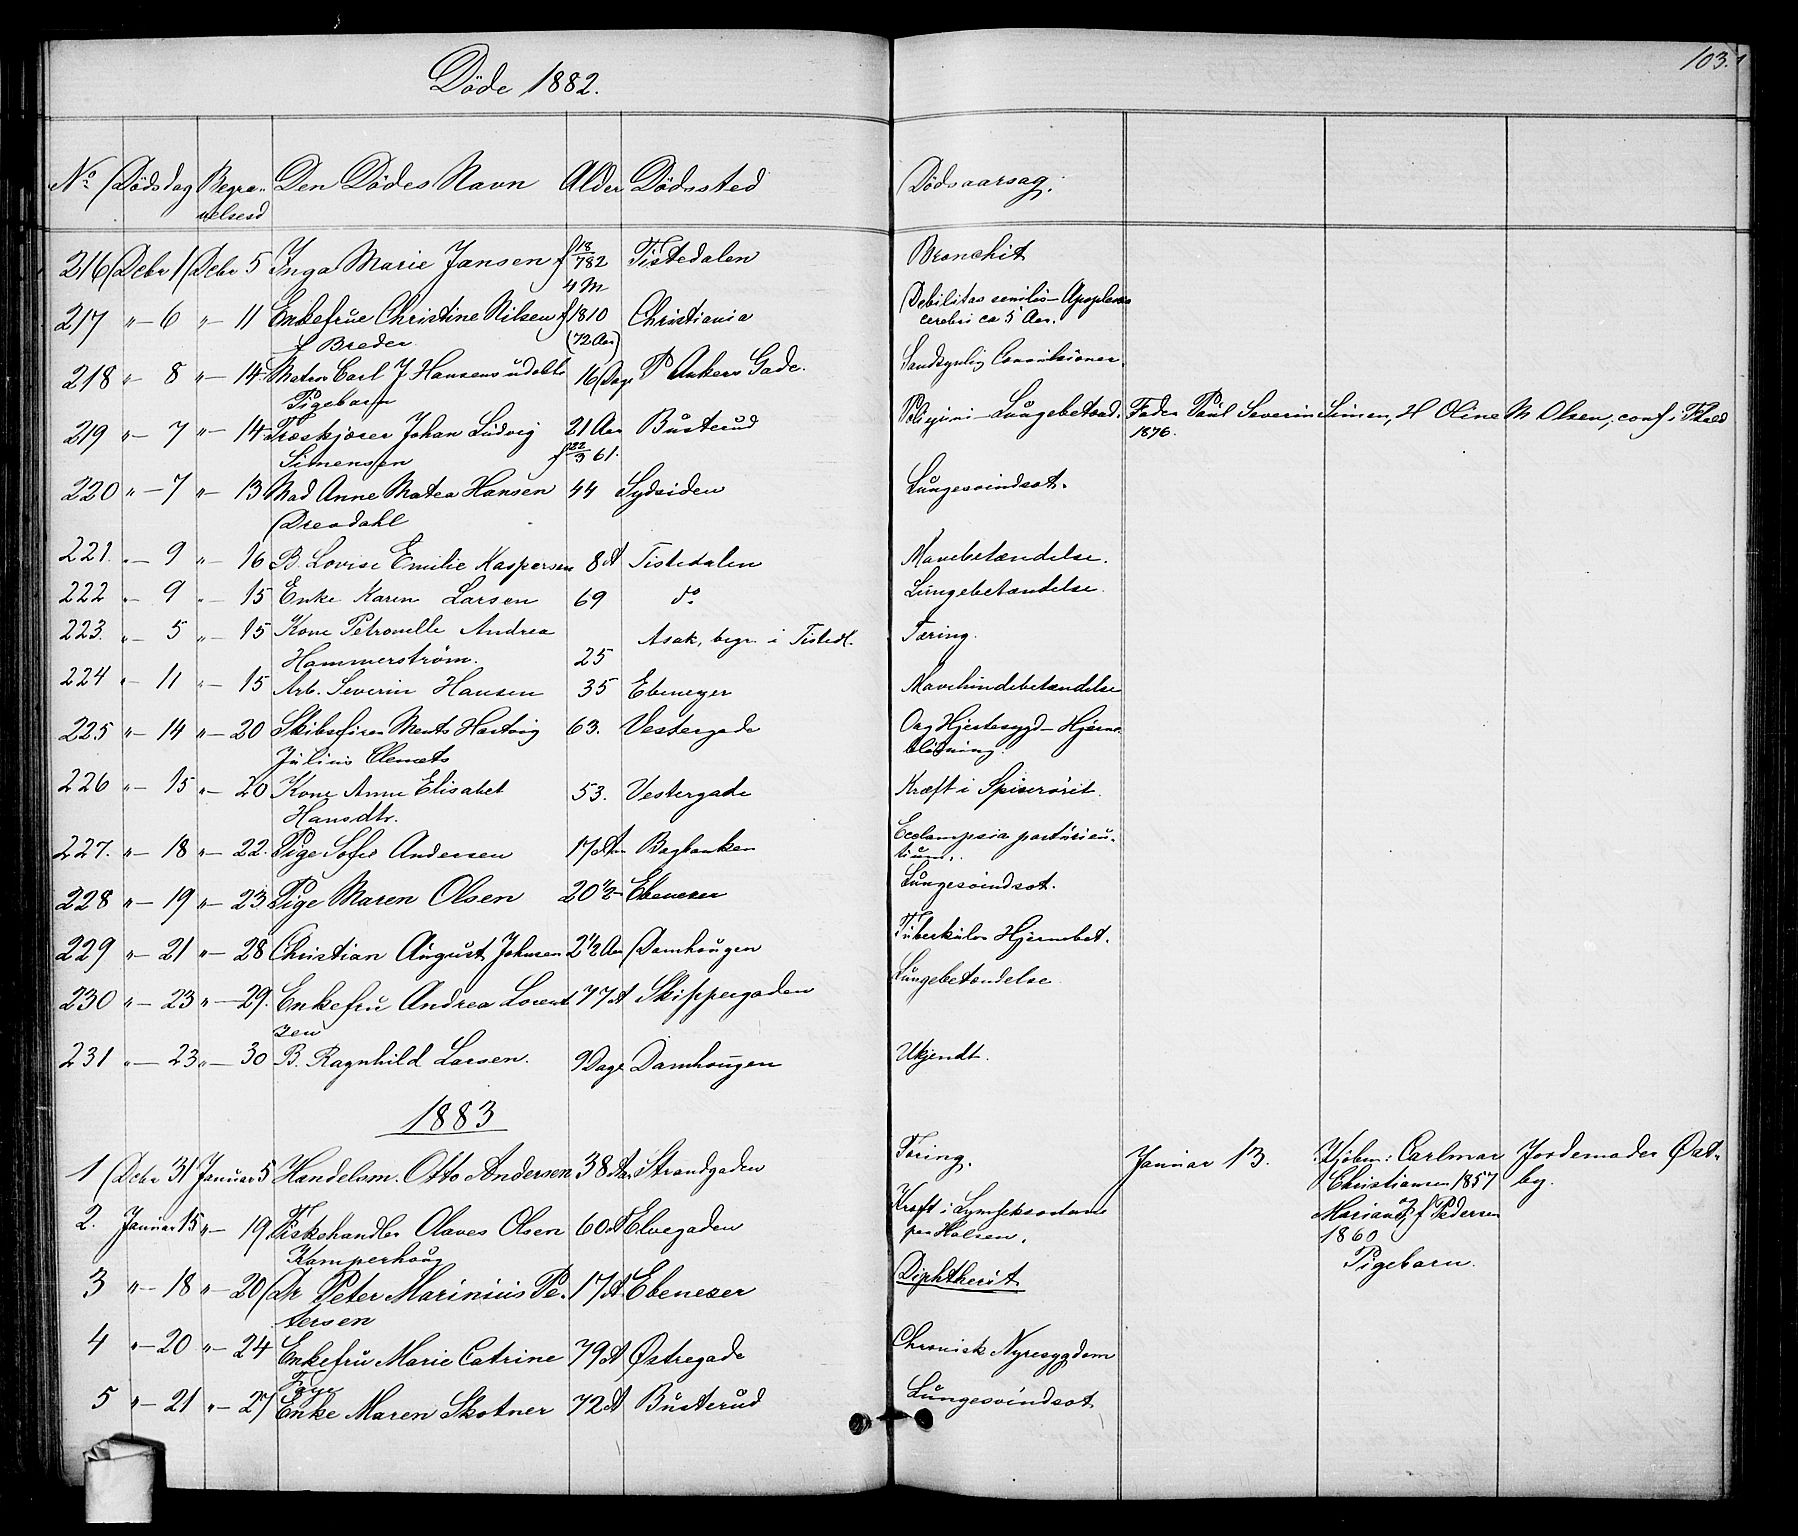 103.
Døde 1882.
No Dødsdag Begra- Den Dødes Navn Alder Dødssted Dødsaarsag.
velsesd
216 Decbr 1 Decbr 5 Inga Marie Jansen f 18/7 82 Tistedalen Bronchit
4 M
217 " — 6 " — 11 Enkefrue Christine Nilsen f 1810 Christiania Debilitas senilis — Apoplexia
f Breder (72 Aar) cerebri ca 5 Aar.
218 " — 8 " — 14 Matros Carl J Hansens udøbte 16 Dage P Ankers Gade. Sandsynlig Convulsioner.
Pigebarn
219 " — 7 " — 14 Træskjærer Johan Ludvig 21 Aar Busterud Lungebetænd. Fader Paul Severin Simen, H Oline M Olsen, conf i
Simensen f 22/3 61. 1876.
220 " — 7 " — 13 Mad Anne Matea Hansen 44 Sydsiden Lungesvindsot.
221. " — 9 " — 16 B. Lovise Emilie Kaspersen 8 A Tistedalen Mavebetændelse.
222 " — 9 " — 15 Enke Karen Larsen 69 do Lungebetændelse.
223. " — 5 " — 15 Kone Petronelle Andrea Asak, begr. i Tistedl. Tæring.
Hammerstrøm. 25
224 " — 11 " — 15 Arb. Severin Hansen 35 Ebenezer Mavehindebetændelse
225 " — 14 " — 20 Skibsfører Ments Hartvig 63. Vestergade Org Hjertesygd — Hjerne
Julius blødning.
226 " — 15 " — 20 Kone Anne Elisabet 53. Vestergade Kræft i Spiserørit.
Hansdtr.
227. " — 18 " — 22. Pige Sofie Andersen 17 Aar Bagbanken Ecclampsia parturien-
tium.
228 " — 19 " — 23 Pige Maren Olsen 20 1/2 — Ebeneser Lungesvindsot.
229 " — 21 " — 28 Christian August Johnsen 2 1/2 Aar Damhougen Tuberkuløs Hjernebet.
230 " — 23 " — 29. Enkefru Andrea Lorent 77 A Skippergaden Lungebetændelse
zen
231 " — 23 " — 30 B. Ragnhild Larsen. 9 Dage Damhougen Ukjendt.
1883
1 Decbr 31 Januar 5 Handelsm. Otto Andersen 38 Aar Strandgaden Tæring. Januar 13. Kjøbm: Carlmar Jordemoder Øst-
Christiansen 1857 by.
2. Januar 15 " — 19 Fiskehandler Olaves Olsen 60 A Elvegaden Kræft i
Kamperhoug paa Halsen. Mariane f Pedersen
1860
Pigebarn.
3 " — 18 " — 20 Dr Peter Marinius Pe- 17 A Ebeneser Diphtherit
tersen
4 " — 20 " — 24 Enkefru Marie Catrine 79 A Østregade Chronisk Nyresygdom
Faye
5 " — 21 " — 27 Enke Maren Skotner 72 A Busterud Lungesvindsot